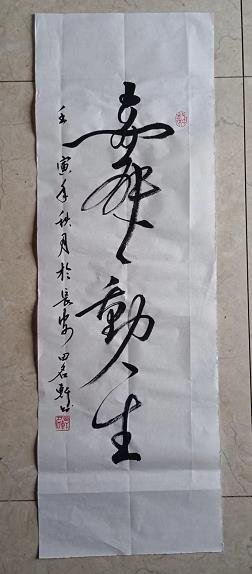 舞動人生
壬寅年秋月於長安田名軒书